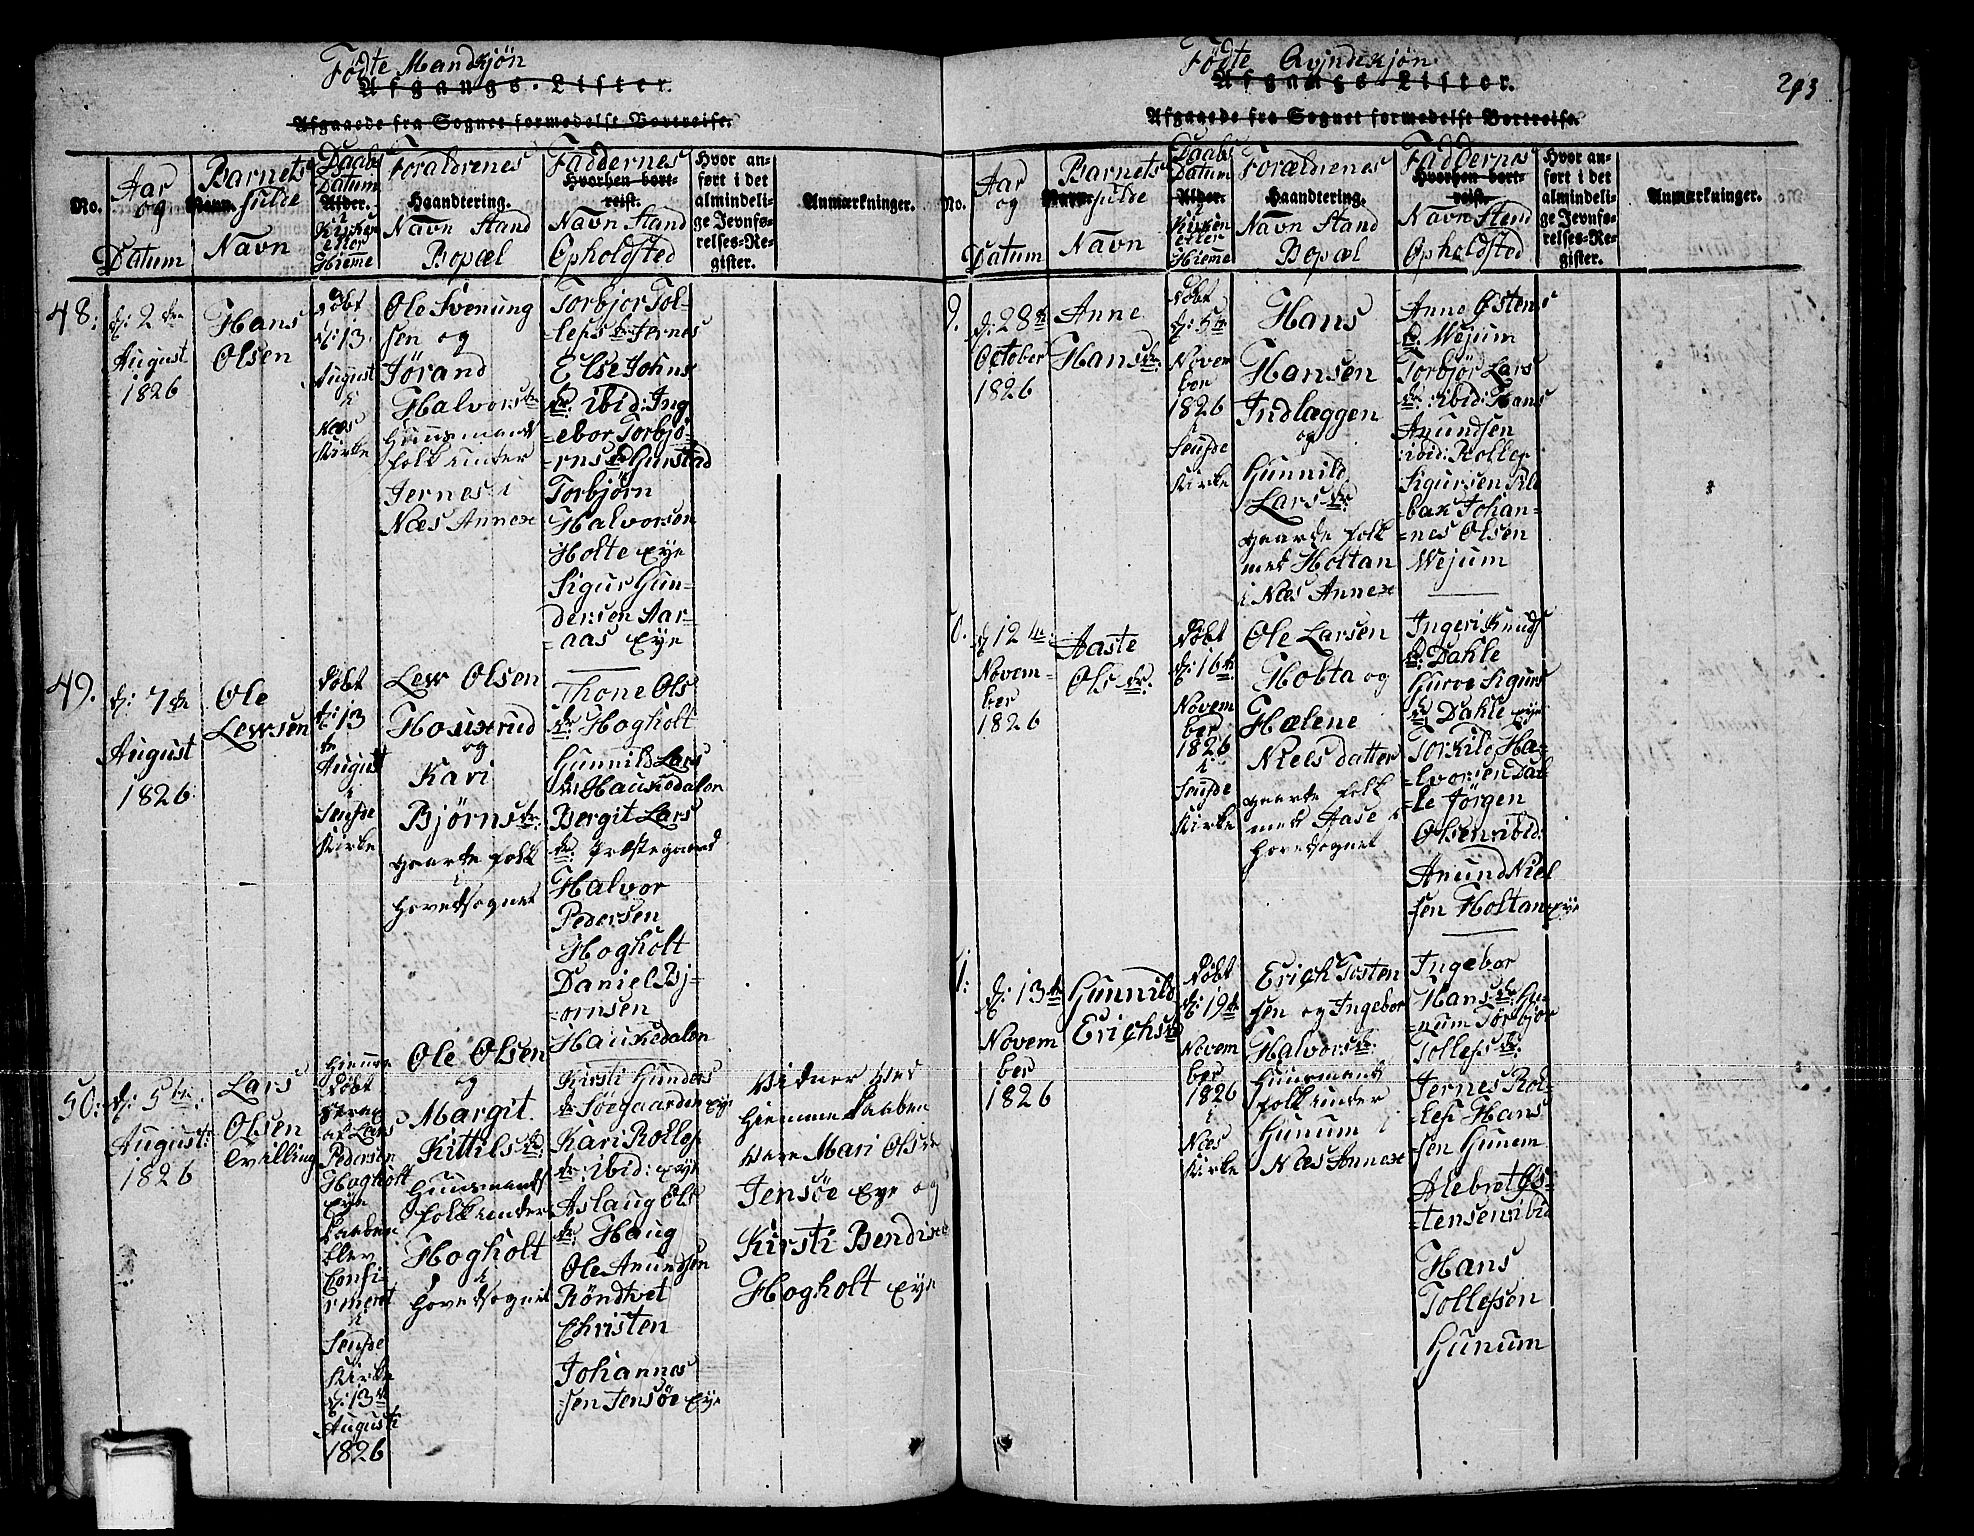 Fødte Mandkjøn
Afgangs-Lister.
Afgaaede fra Sognet formedelst Bortreise.
No.
Aar
og
Datum
Barnets
Navn. fulde
Navn
Daabs
Datum
Alder.
i
Kirken
eller
Hiemme
Forældrenes
Haandtering.
Navn Stand
Bopæl
Faddernes
Hvorhen bort-
reist.
Navn Stand
Opholdsted
Hvor an-
ført i det
almindeli-
ge Jevnfø-
relses-Re-
gister.
Anmærkninger.
48:
d: 2den
August
1826
Hans
Olsen
Døbt
d: 13
August
i
Næs
Kirke
Ole Svenung
sen og
Jørand
Halvorsdr
Huusmands
folk under
Jernes i
Næs Annex
Torbjør Tol-
lefsdr Jernes
Else Johns
dr: ibid: Ing
=ebor Torbjö-
=rnsdr Gurstad
Torbjørn
Halvorsen
Holte eye
Sigur Gun-
dersen Aar-
=aas eye
49.
d: 7de
August
1826
Ole
Lewsen
Døbt
d: 13
de
August
i
Seufde
Kirke
Lew Olsen
Houxerud
og
Kari
Bjørnsdr:
gaarde folk
i
hovedsognet
Thone Ols
dr: Hogholt
Gunnild Lars
dr: Haukedalen
Bergit Lars
dr: Præstegaard
Halvor
Pedersen
Hogholt
Daniel Bj-
=ornsen
Haukedalen
50:
d: 5te:
August:
1826
Lars
Olsen
Tvilling
hiemme
Døbt
af Lars
Pedersen
Hogholt
eye
Daaben
blev
Confi-
rmeret
i
Seufde
Kirke
d: 13de
Augusti
1826
Ole Olsen
og
Margit
Kittilsdr:
Huusmands
folk under
Hogholt
i
hovedsognet
Kirsti Gunders
dr Søegaarden eye
Kari Rollef
dr: ibid: eye
Aslaug Ols
dr: Haug
Ole Anundsen
Röndtvet
Christen
Johannes
sen Jensöe eye
Vidner ved
hiemme Daaben
vare Mari Olsdr
Jensöe eye og
Kirsti Bendix
Hogholt eye
Fødte Qvindekjøn
293
Afgangs-Lister.
Afgaaede fra Sognet formedelst Bortreise.
No.
Aar
og
Datum
Barnets
Navn. fulde
Navn
Daabs
Datum
Alder.
i
Kirken
eller
Hiemme
Forældrenes
Haandtering.
Navn Stand
Bopæl
Faddernes
Hvorhen bort-
reist.
Navn Stand
Opholdsted
Hvor an-
ført i det
almindeli-
ge Jevnfø-
relses-Re-
gister.
Anmærkninger.
9.
d: 28de
October
1826
Anne
Hansdr:
Døbt
d: 5te
Novem
ber
1826
i
Seufde
Kirke
Hans
Hansen
Indlæggen
og
Gunnild
Larsdr
gaarde folk
med Holtan
i Næs Annex
Anne Østens
dr: Wejum
Torbjør Lars
dr: ibid: Hans
Anundsen
ibid: Rollef
Sigursen
Johan-
=nes Olsen
Wejum
0.
d: 12te:
Novem-
ber
1826
Aaste
Olsdr.
Døbt
d: 16de
Novem
ber
1826
i
Seufde
Kirke
Ole Larsen
Hobta og
Hælene
Nielsdatter
gaarde folk
med Aase i
hovedsognet
Ingeri Knuds
dr: Dahle
Gurve Sigurs
dr Dahle eye
Torkild Ha-
=lvorsen Dah
=le Jörgen
Olsen ibid:
Anund Niel
sen Holtan eye
1:
d: 13de
Novem
ber
1826
Gunnild
Erichsdr
Døbt
d: 19de
Novem
ber
1826
i
Næs
Kirke
Erich Tosten
sen og Ingebor
Halvorsdr:
Huusmands
folk under
Gunum i
Næs Annex
Ingebor
Hansdr Gu-
=num Torbjor
Tollefsdr:
Jernes Rol-
=lef Hans
sen Gunem
Alebret Øs-
=tensen ibid
Hans
Tollefsen
Gunum